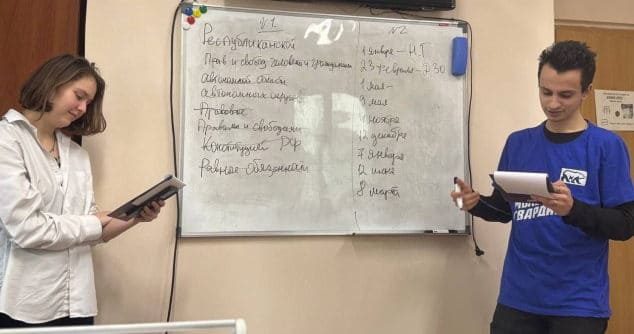 №1.
Республиканской
Прав и свобод человека и гражданина
автономной области
автономных округов
Правовое
Правами и свободами
Конституцией РФ
Равные обязанности
№2
1 января – НГ
23 февраля – ДЗО
1 мая –
9 мая
4 ноября
12 декабря
7 января
12 июня
8 марта
МОЛОДАЯ
ГВАРДИЯ